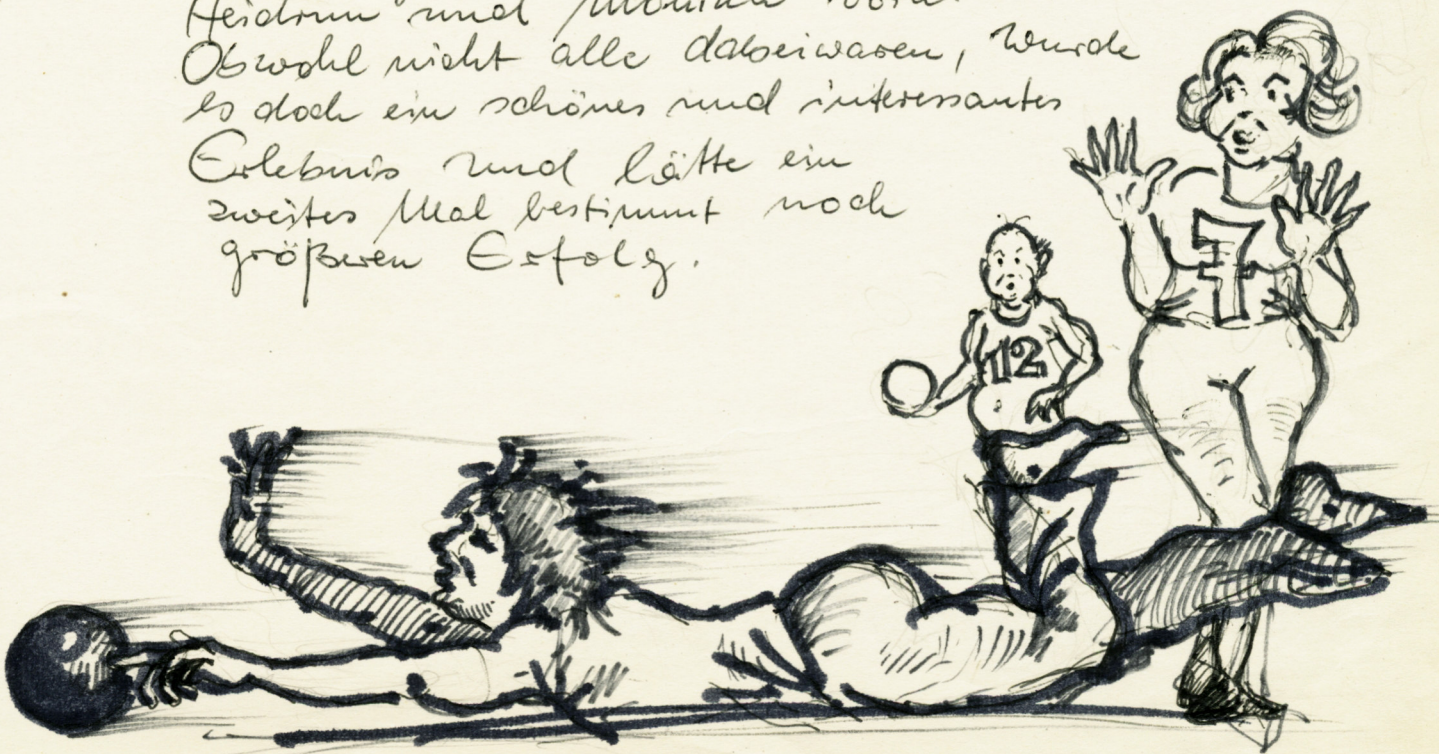 Heidrun und Monika
Obwohl nicht alle dabeiwaren, wurde
es doch ein schönes und interessantes
Erlebnis und hätte ein
zweites Mal bestimmt noch
größeren Erfolg.
12
7